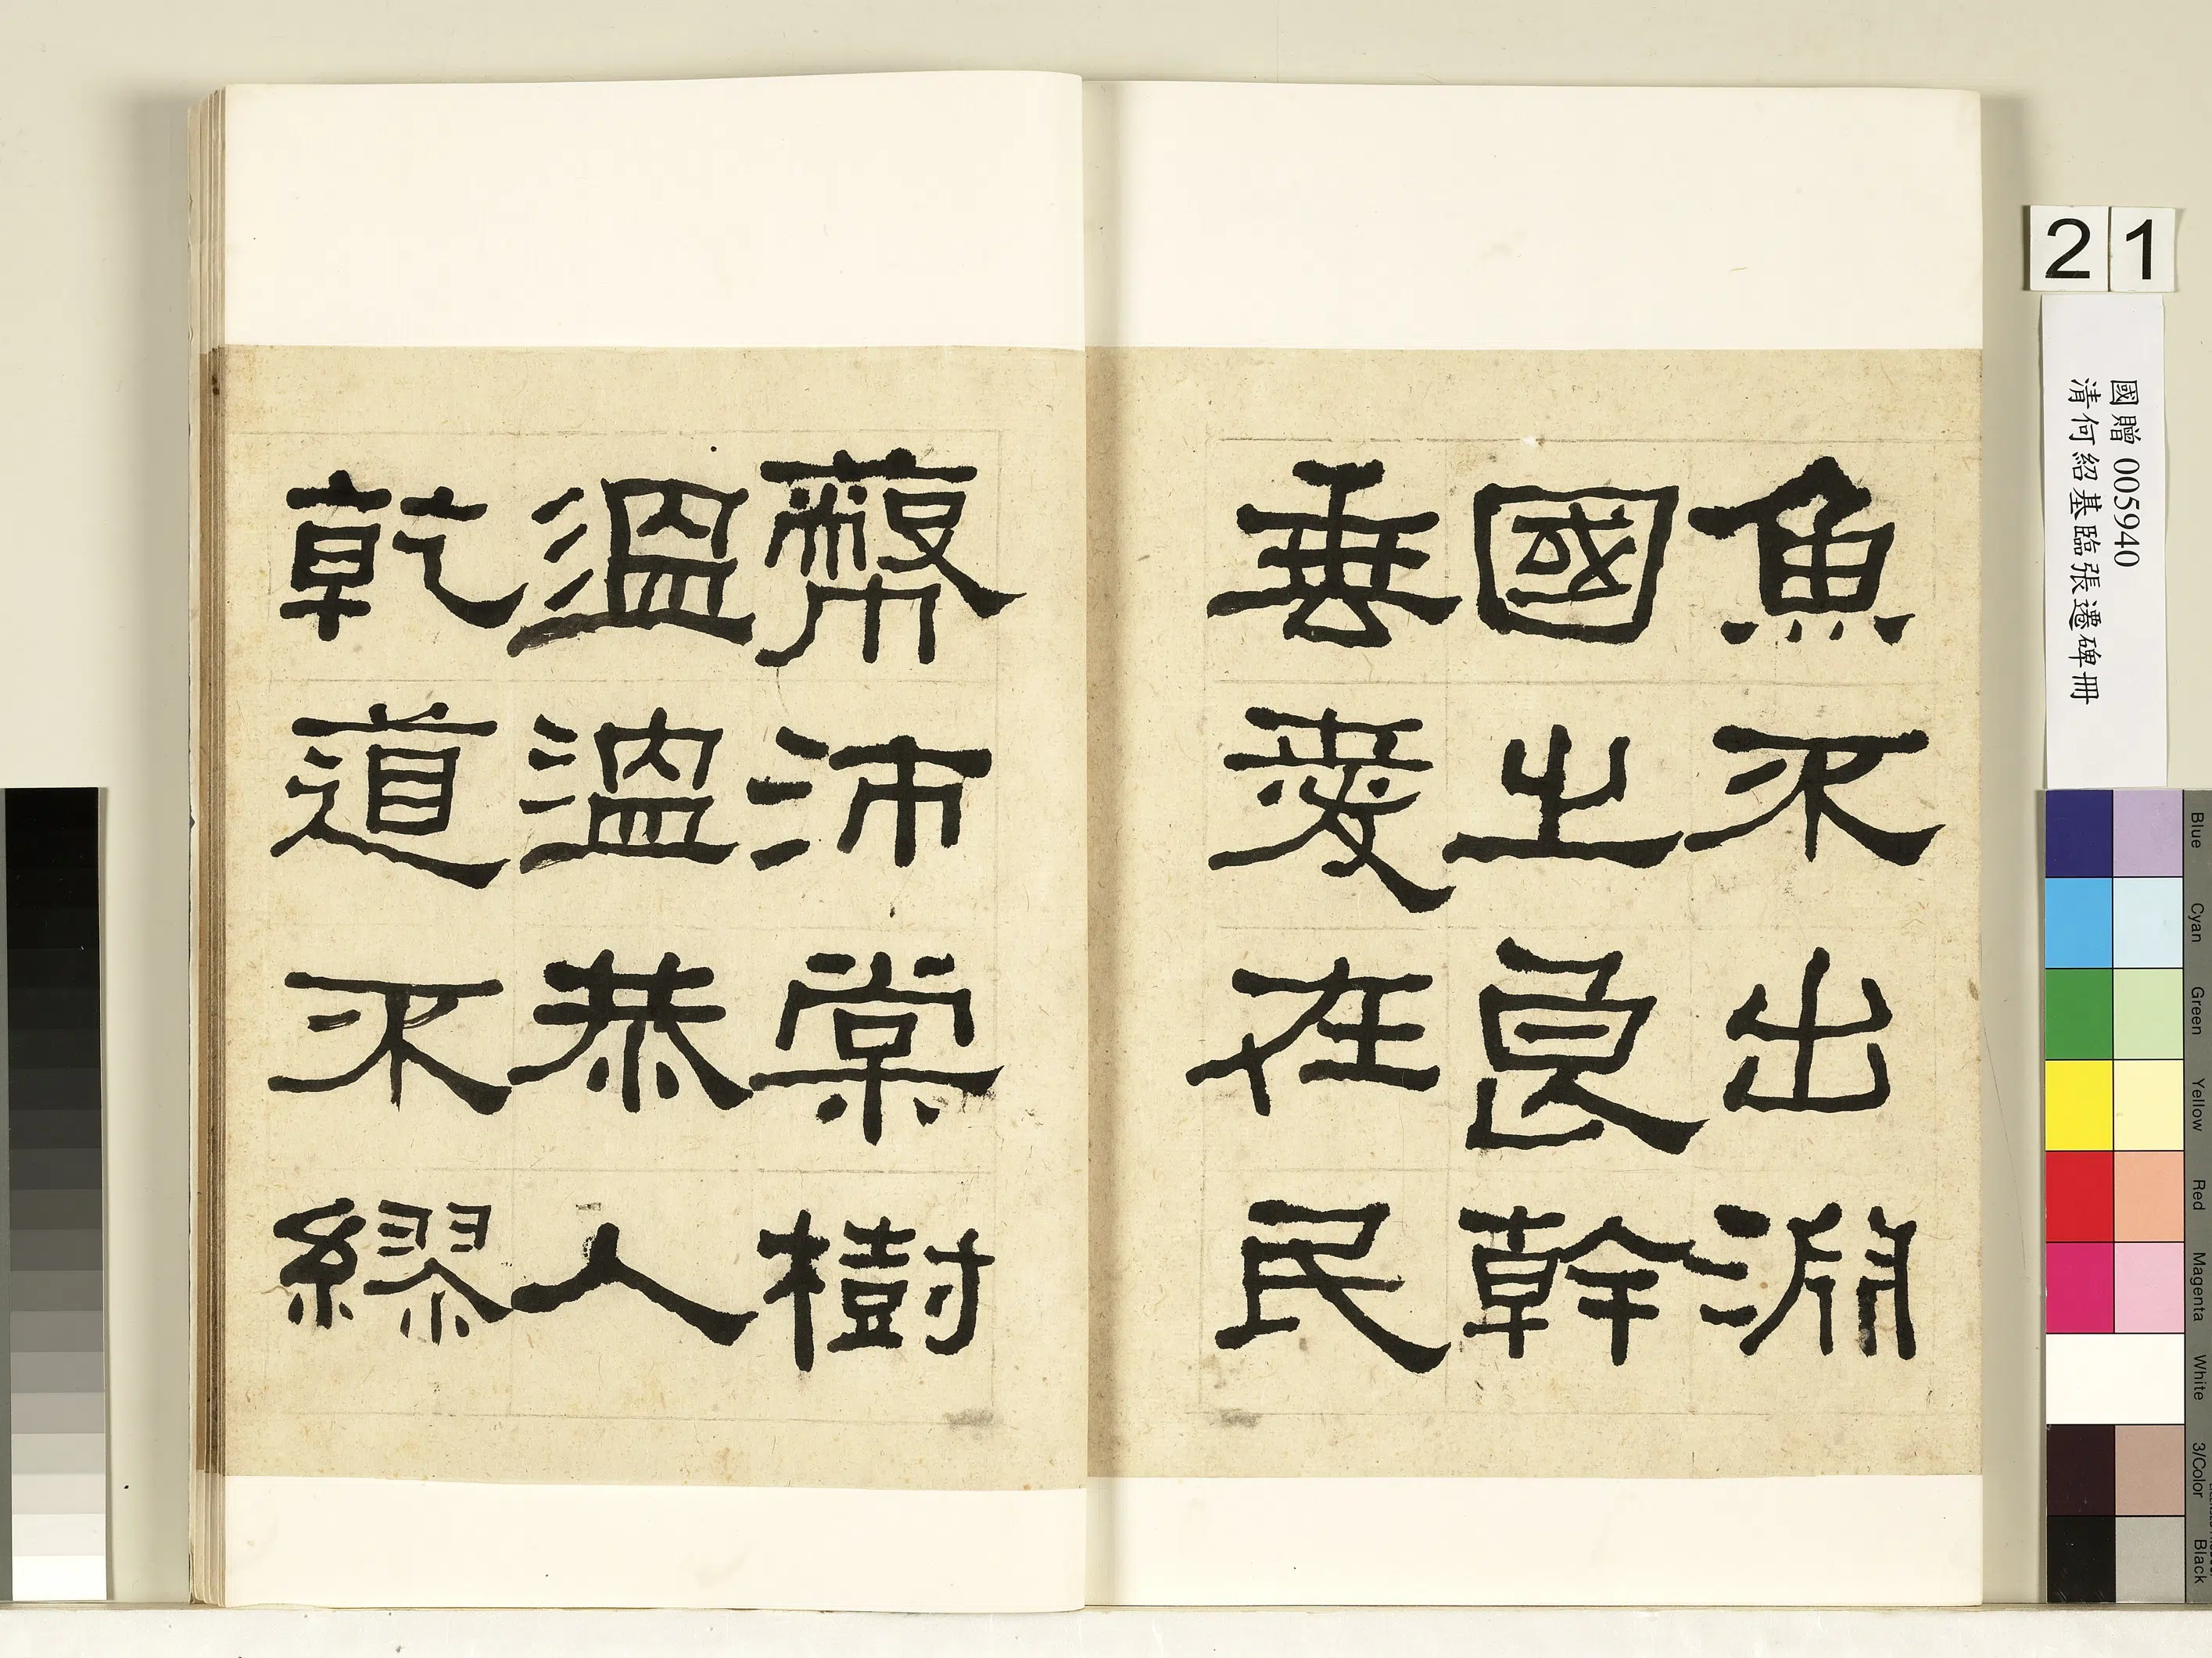 魚不出淵
國之良幹
垂愛在民
蔽沛棠樹
溫溫恭人
乾道不繆
21
國贈 005940
清何紹基臨張遷碑冊
Blue
Cyan
Green
Yellow
Red
Magenta
White
3/Color
Black